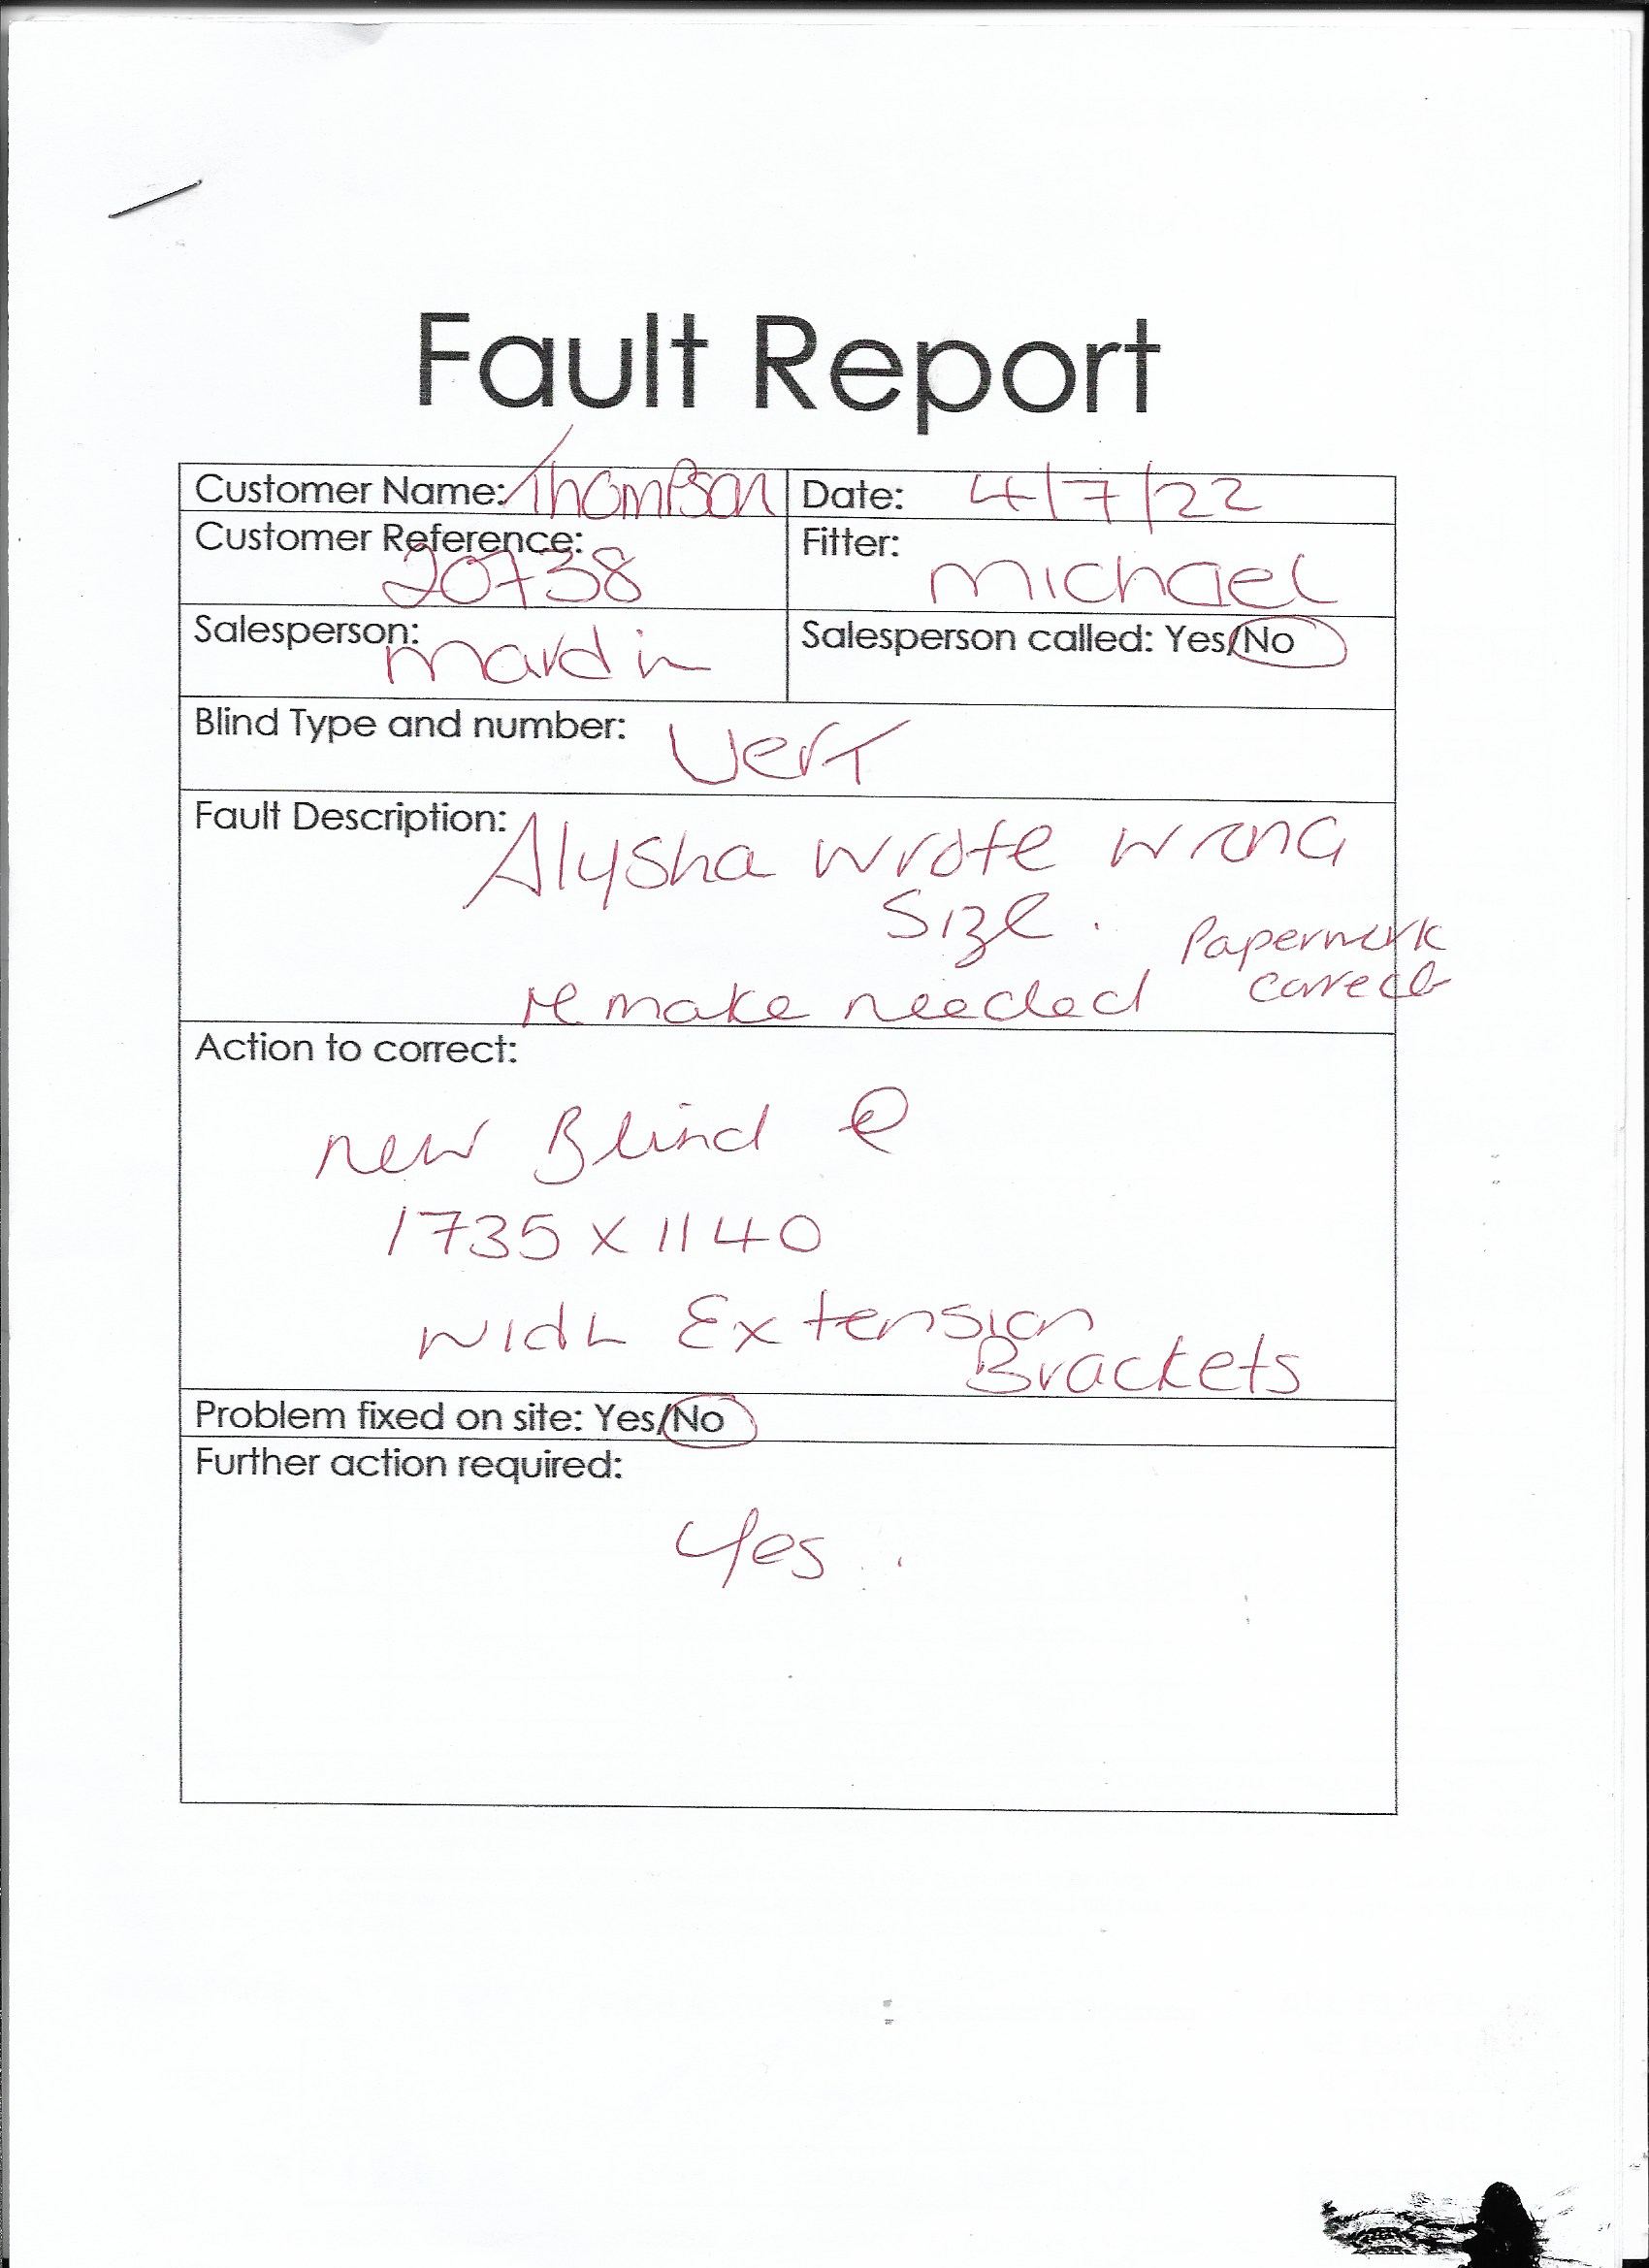 Fault Report
Customer Name: Thompson
Date: 4/7/22
Customer Reference: 20738
Fitter: michael
Salesperson: mardin
Salesperson called: Yes/No
Blind Type and number: Vert
Fault Description: Alysha wrote wrong
size.
Paperwork
correct
remake needed
Action to correct:
new Blind @
1735 x 1140
with Extension
Brackets
Problem fixed on site: Yes/No
Further action required:
Yes.